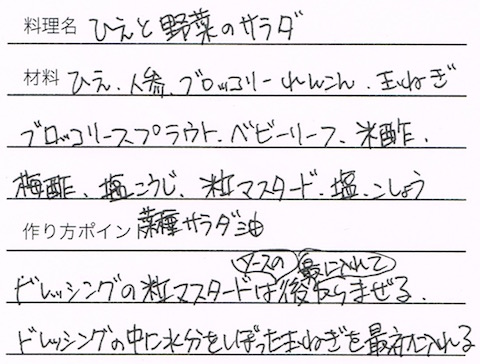 料理名 ひえと野菜のサラダ
材料 ひえ、人参、ブロッコリー れんこん、玉ねぎ
ブロッコリースプラウト、ベビーリーフ、米酢、
梅酢、塩こうじ、粒マスタード、塩、こしょう
菜種サラダ油
作り方ポイント
ソースの 最後に入れて
ドレッシングの粒マスタードは後からまぜる、
ドレッシングの中に水分をしぼった玉ねぎを最初に入れる